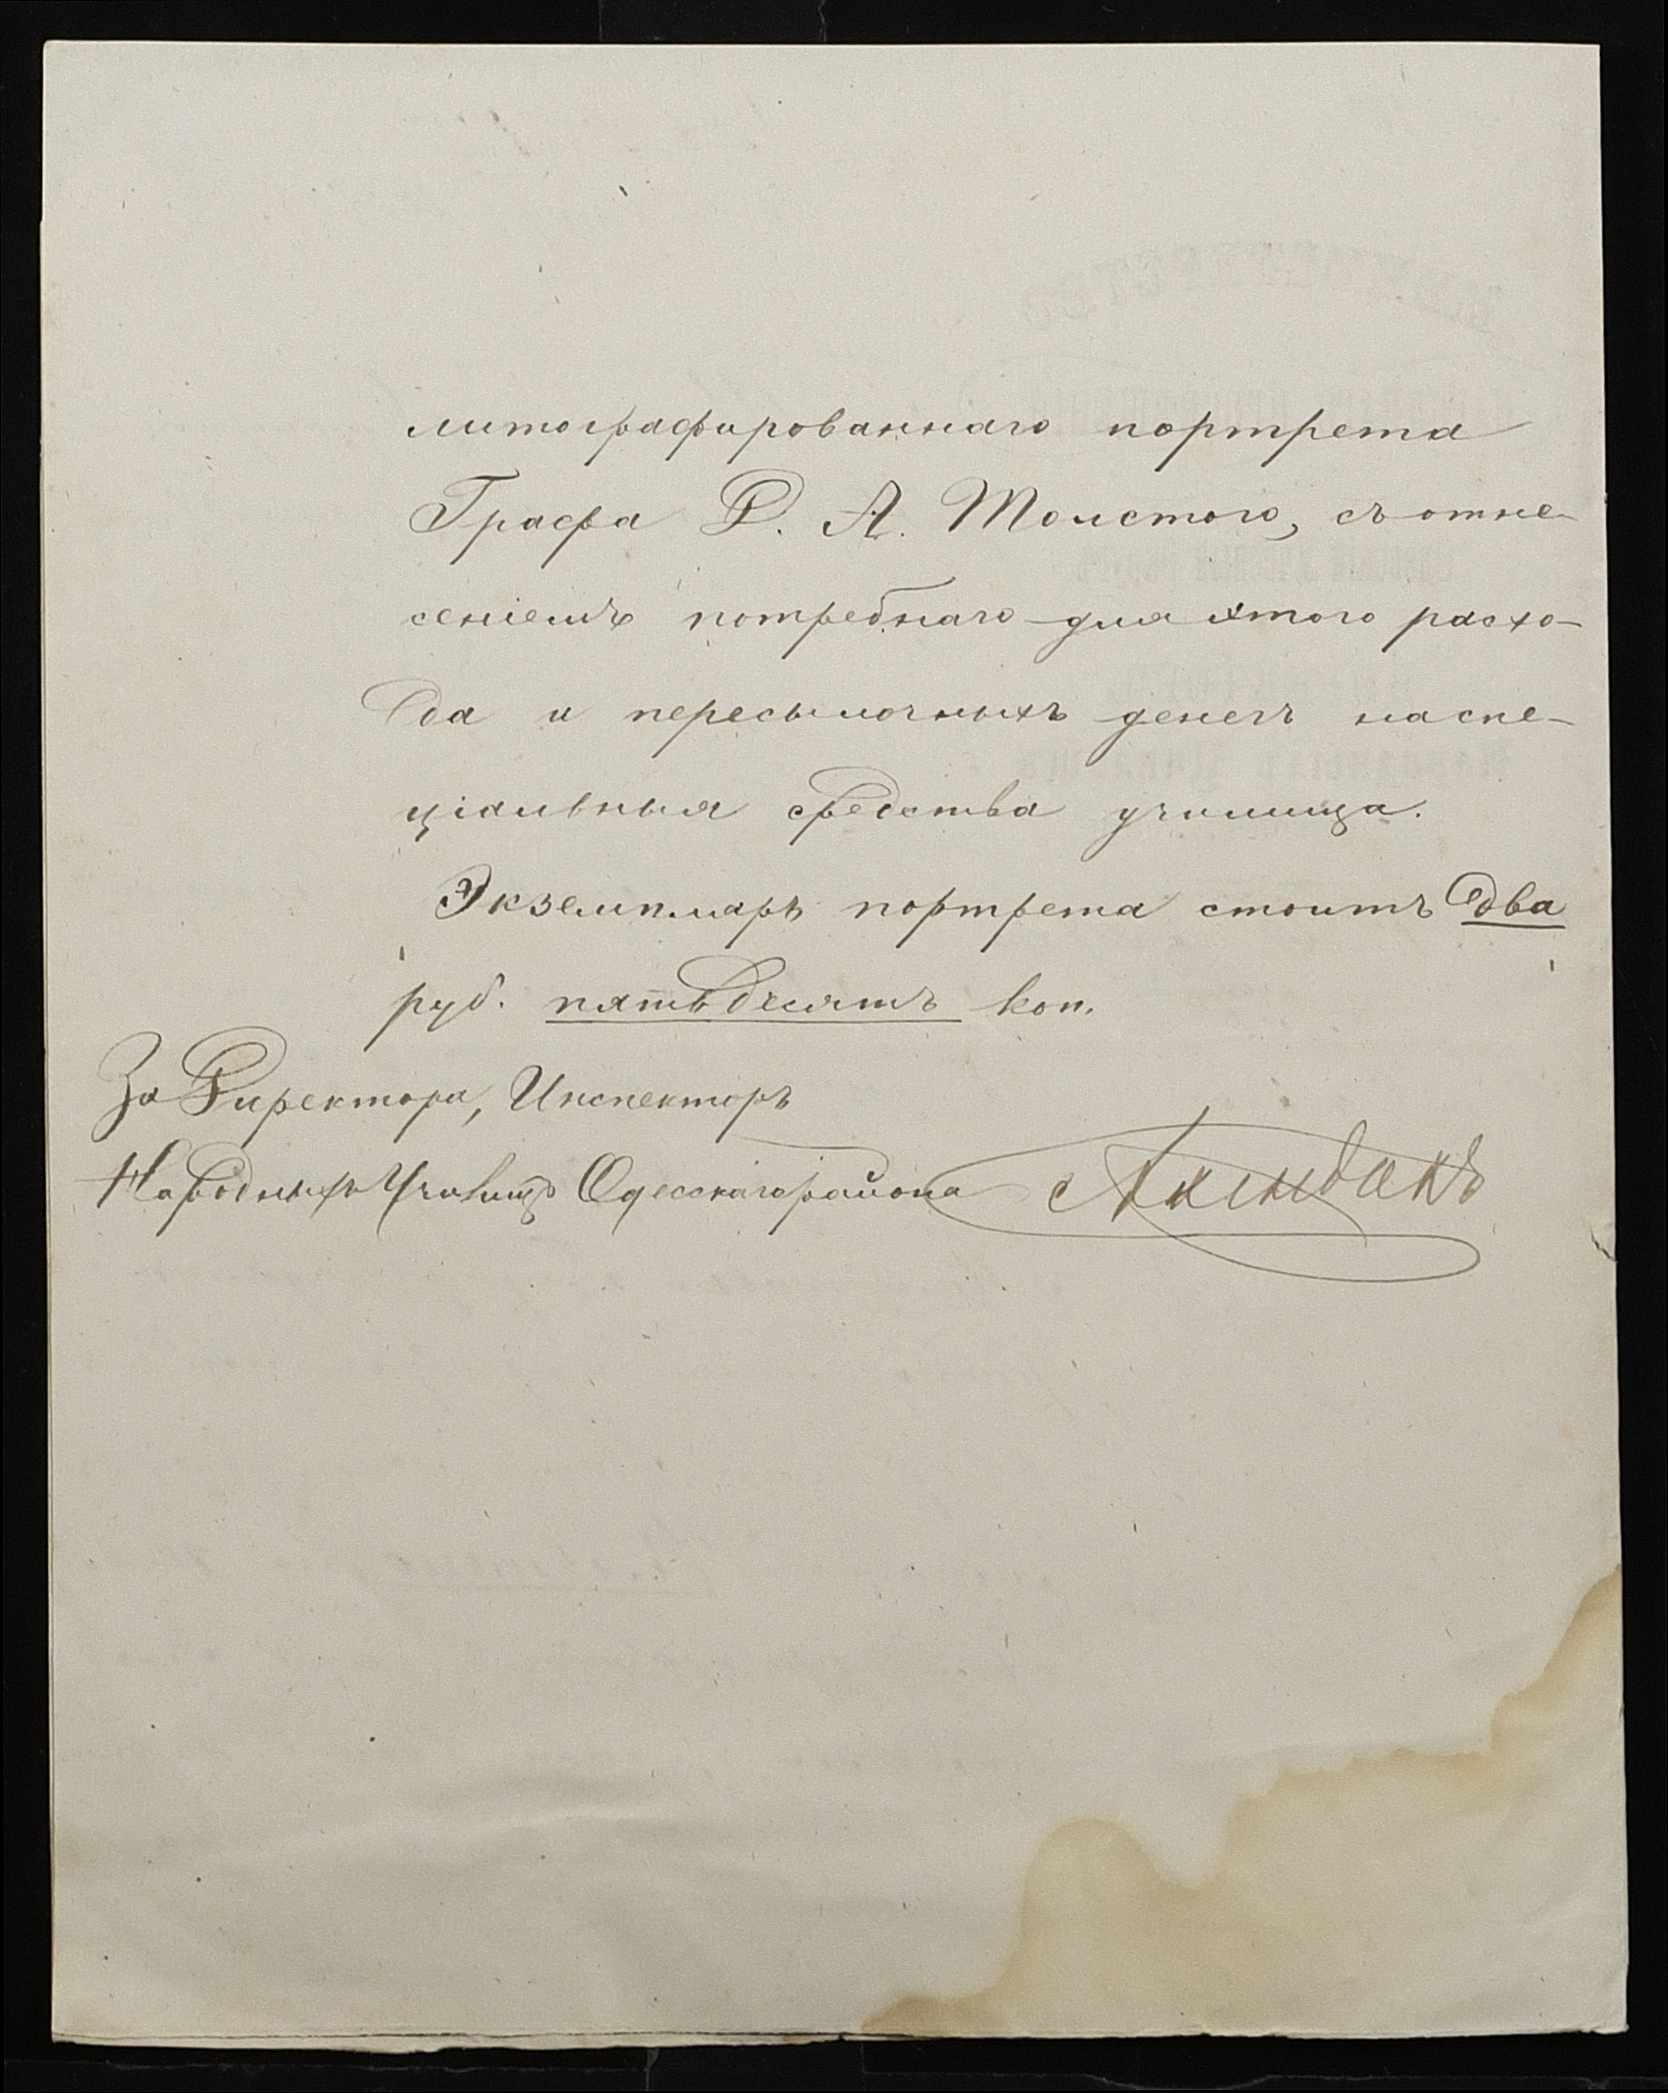 литографированнаго портрета
Графа Д. А. Толстого, съ отне-
сеніемъ потребнаго для этого расхо-
да и пересылочныхъ денегъ на спе-
ціальныя средства училища.
Экземпляръ портрета стоитъ два
руб. пятьдесятъ коп.
За Директора, Инспекторъ
Народныхъ Училищъ Одесскаго района